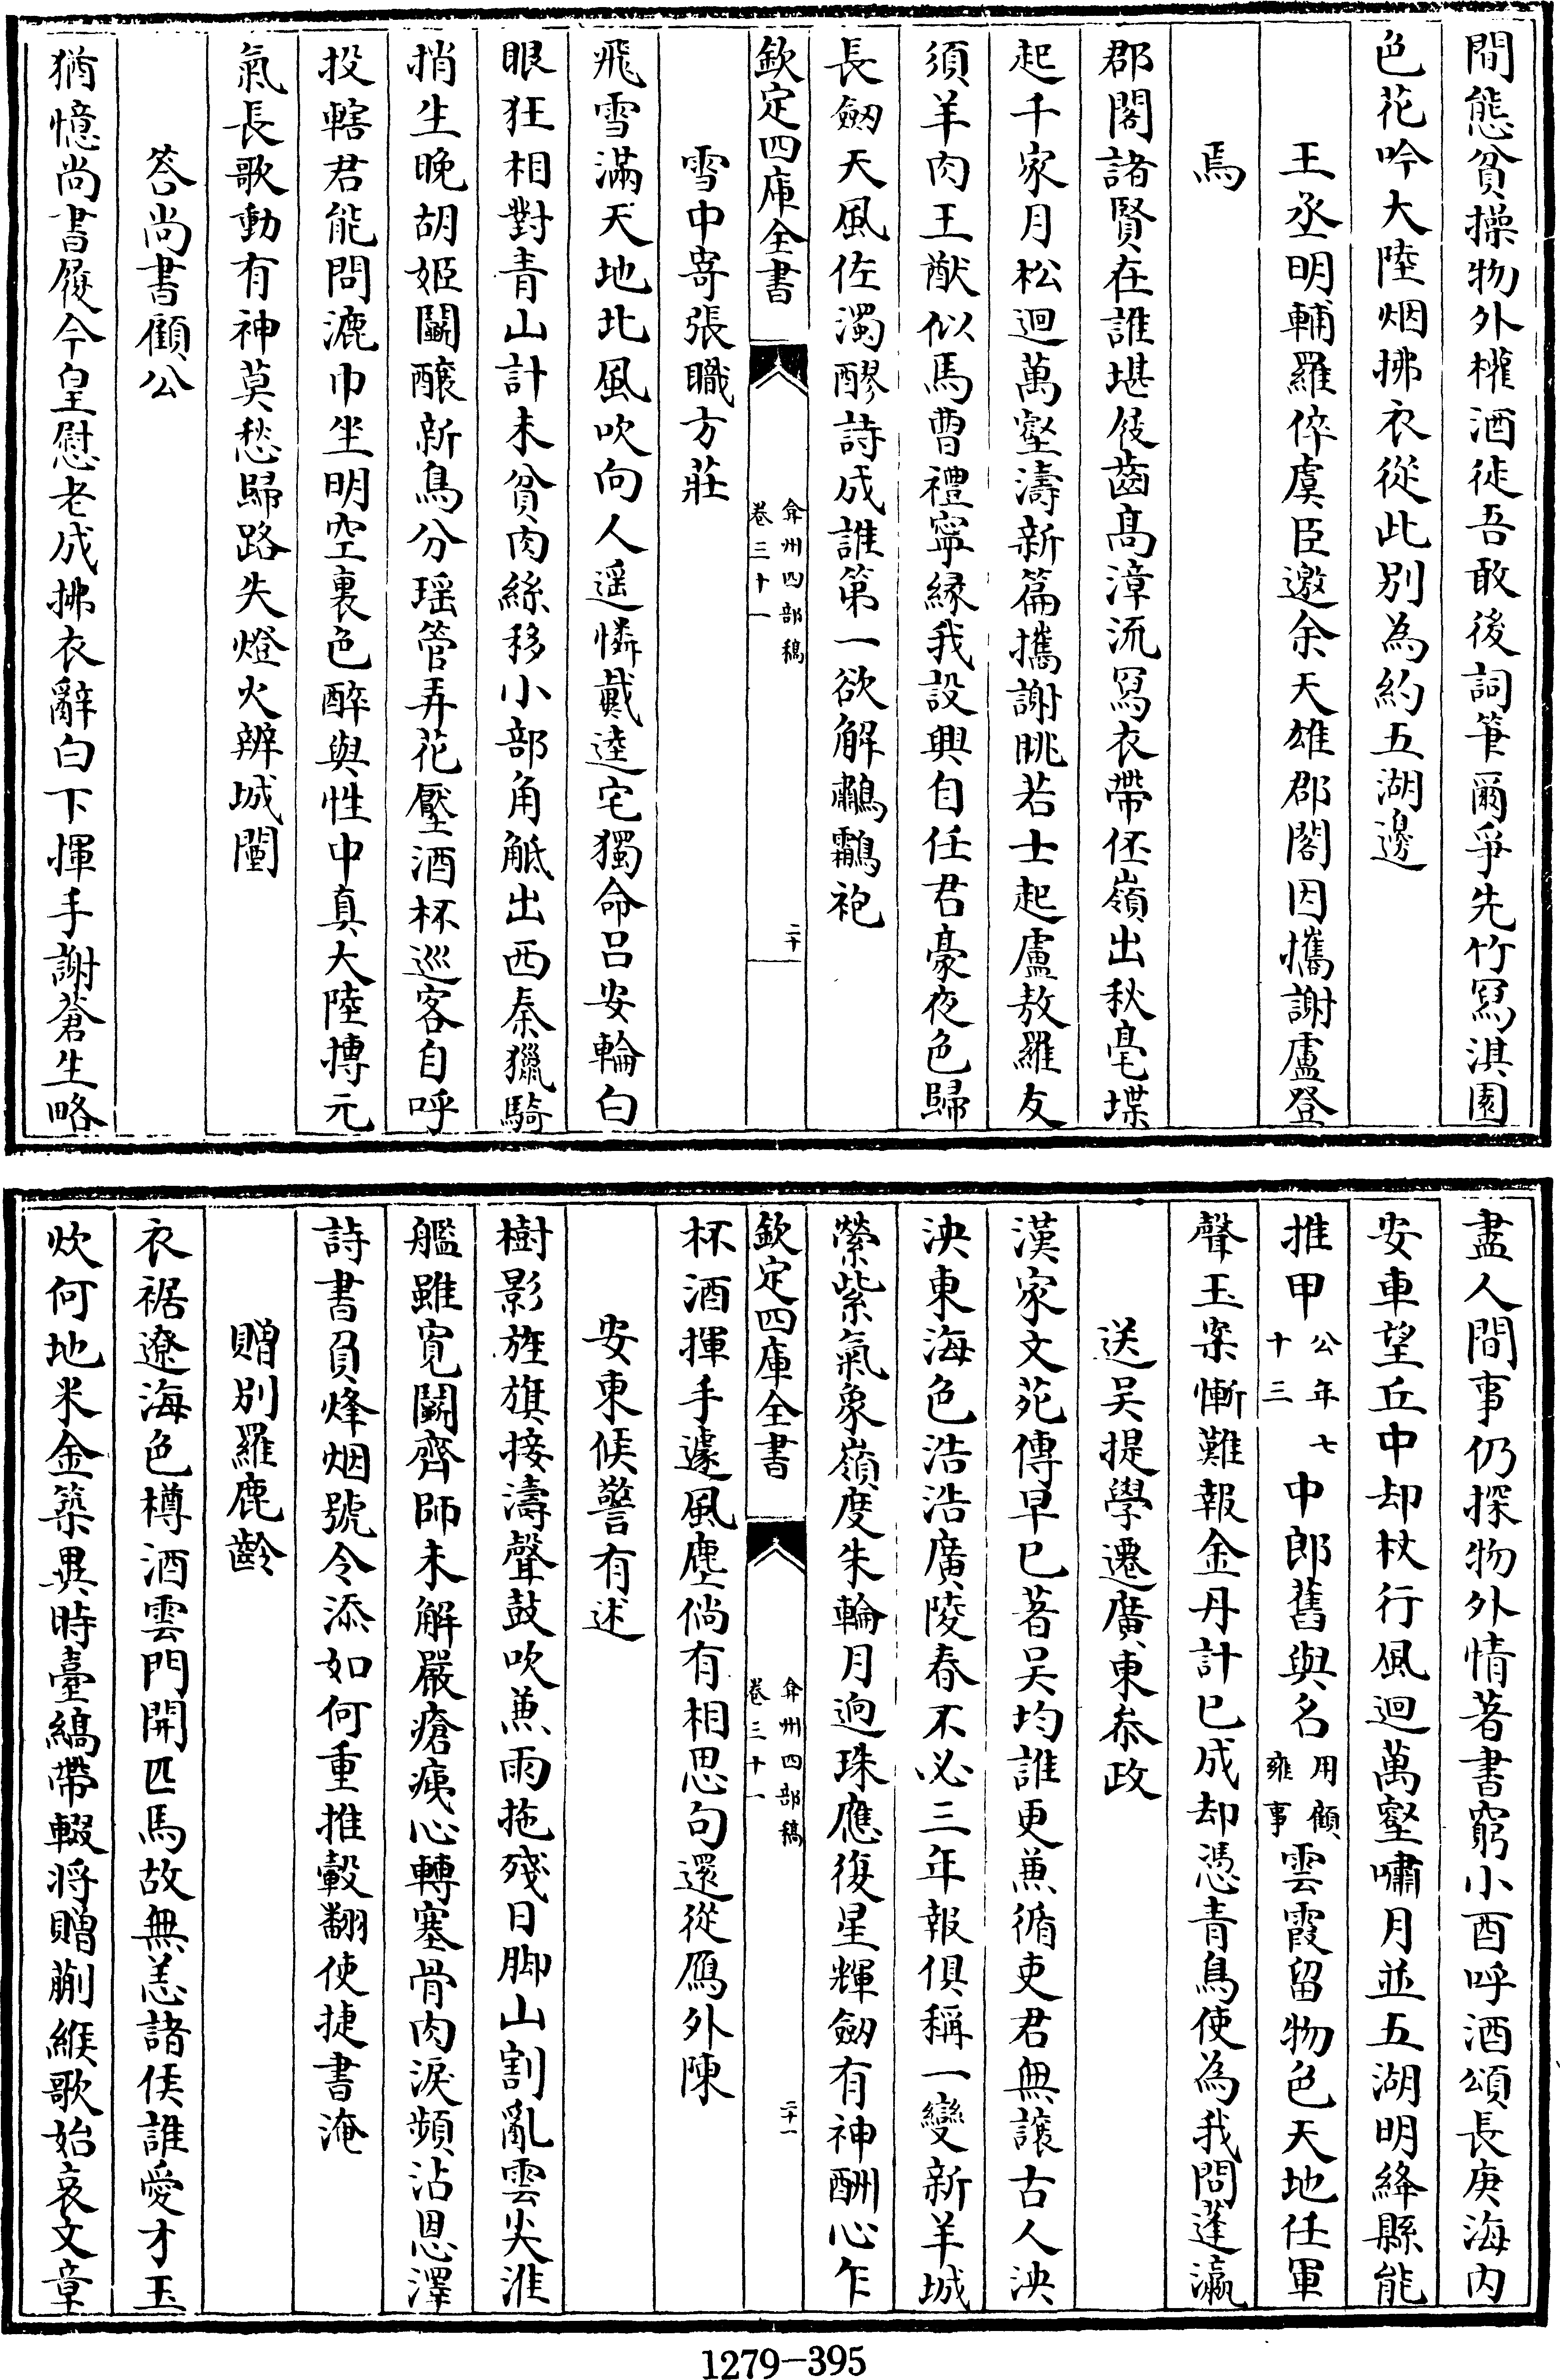 間態貧操物外權酒徒吾敢後詞筆爾爭先竹冩淇園
色花吟大陸烟拂衣從此別為約五湖邊
王丞明輔羅倅虞臣邀余天雄郡閣因攜謝盧登
焉
郡閣諸賢在誰堪屐齒髙漳流冩衣帶伾嶺出秋毫堞
起千家月松迴萬壑濤新篇攜謝眺若士起盧敖羅友
須羊肉王猷似馬曹禮寧緣我設興自任君豪夜色歸
長劒天風佐濁醪詩成誰第一欲解鷫鸘袍
欽定四庫全書
弇州四部稿
卷三十一
二十
雪中寄張職方莊
飛雪滿天地北風吹向人遥憐戴逵宅獨命吕安輪白
眼狂相對青山計未貧肉絲移小部角觝出西秦獵騎
捎生晚胡姬鬭釀新鳥分瑶管弄花壓酒杯巡客自呼
投轄君能問漉巾坐明空裏色醉與性中真大陸摶元
氣長歌動有神莫愁歸路失燈火辨城闉
答尚書顧公
猶憶尚書履今皇慰老成拂衣辭白下揮手謝蒼生略
盡人間事仍探物外情著書窮小酉呼酒頌長庚海內
安車望丘中却杖行風迴萬壑嘯月並五湖明絳縣能
推甲公年七十三中郎舊與名用顧雍事雲霞留物色天地任軍
聲玉案慚難報金丹計已成却憑青鳥使為我問蓬瀛
送吴提學遷廣東叅政
漢家文苑傳早已著吴均誰更兼循吏君無讓古人泱
泱東海色浩浩廣陵春不必三年報俱稱一變新羊城
縈紫氣象嶺度朱輪月逈珠應復星輝劒有神酬心乍
欽定四庫全書
弇州四部稿
卷三十一
二十一
杯酒揮手遽風塵倘有相思句還從鴈外陳
安東候警有述
樹影旌旗接濤聲鼓吹兼雨拖殘日脚山割亂雲尖淮
艦雖寛鬭齊師未解嚴瘡痍心轉塞骨肉淚頻沾恩澤
詩書負烽烟號令添如何重推轂翻使捷書淹
贈別羅鹿齡
衣裾遼海色樽酒雲門開匹馬故無恙諸侯誰愛才玉
炊何地米金築異時臺縞帶輟將贈蒯緱歌始哀文章
1279-395